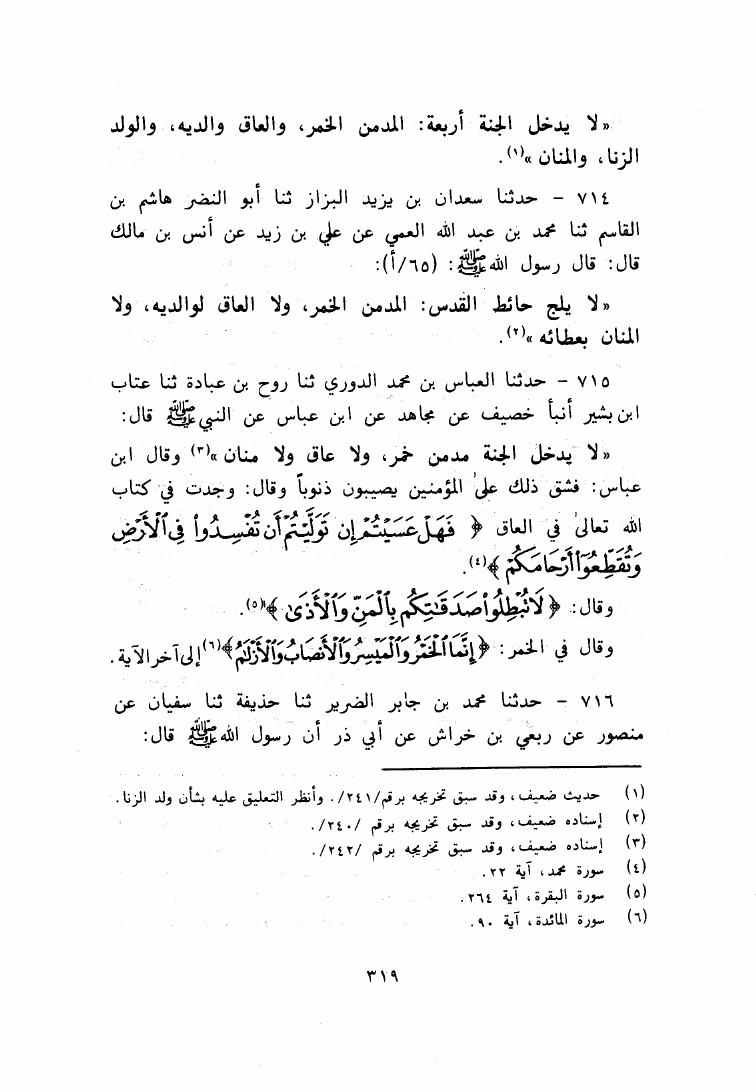 «لا يدخل الجنة أربعة: المدمن الخمر، والعاق والديه، والولد
الزنا، والمنان»(١).
٧١٤ - حدثنا سعدان بن يزيد البزاز ثنا أبو النضر هاشم بن
القاسم ثنا محمد بن عبد الله العمي عن علي بن زيد عن أنس بن مالك
قال: قال رسول الله ﷺ: (٦٥/أ):
«لا يلج حائط القدس: المدمن الخمر، ولا العاق لوالديه، ولا
المنان بعطائه»(٢).
٧١٥ - حدثنا العباس بن محمد الدوري ثنا روح بن عبادة ثنا عتاب
ابن بشير أنبأ خصيف عن مجاهد عن ابن عباس عن النبي ﷺ قال:
«لا يدخل الجنة مدمن خمر، ولا عاق ولا منان»(٣) وقال ابن
عباس: فشق ذلك على المؤمنين يصيبون ذنوباً وقال: وجدت في كتاب
الله تعالى في العاق ﴿ فَهَلْ عَسَيْتُمْ إِن تَوَلَّيْتُمْ أَن تُفْسِدُواْ فِى ٱلْأَرْضِ
وَتُقَطِّعُوٓاْ أَرْحَامَكُمْ ﴾(٤).
وقال: ﴿ لَا تُبْطِلُواْ صَدَقَـٰتِكُم بِٱلْمَنِّ وَٱلْأَذَىٰ ﴾(٥).
وقال في الخمر: ﴿ إِنَّمَا ٱلْخَمْرُ وَٱلْمَيْسِرُ وَٱلْأَنصَابُ وَٱلْأَزْلَـٰمُ ﴾(٦) إلى آخر الآية.
٧١٦ - حدثنا محمد بن جابر الضرير ثنا حذيفة ثنا سفيان عن
منصور عن ربعي بن خراش عن أبي ذر أن رسول الله ﷺ قال:
(١) حديث ضعيف، وقد سبق تخريجه برقم /٢٤١/. وأنظر التعليق عليه بشأن ولد الزنا.
(٢) إسناده ضعيف، وقد سبق تخريجه برقم /٢٤٠/.
(٣) إسناده ضعيف، وقد سبق تخريجه برقم /٢٤٢/.
(٤) سورة محمد، آية ٢٢.
(٥) سورة البقرة، آية ٢٦٤.
(٦) سورة المائدة، آية ٩٠.
٣١٩